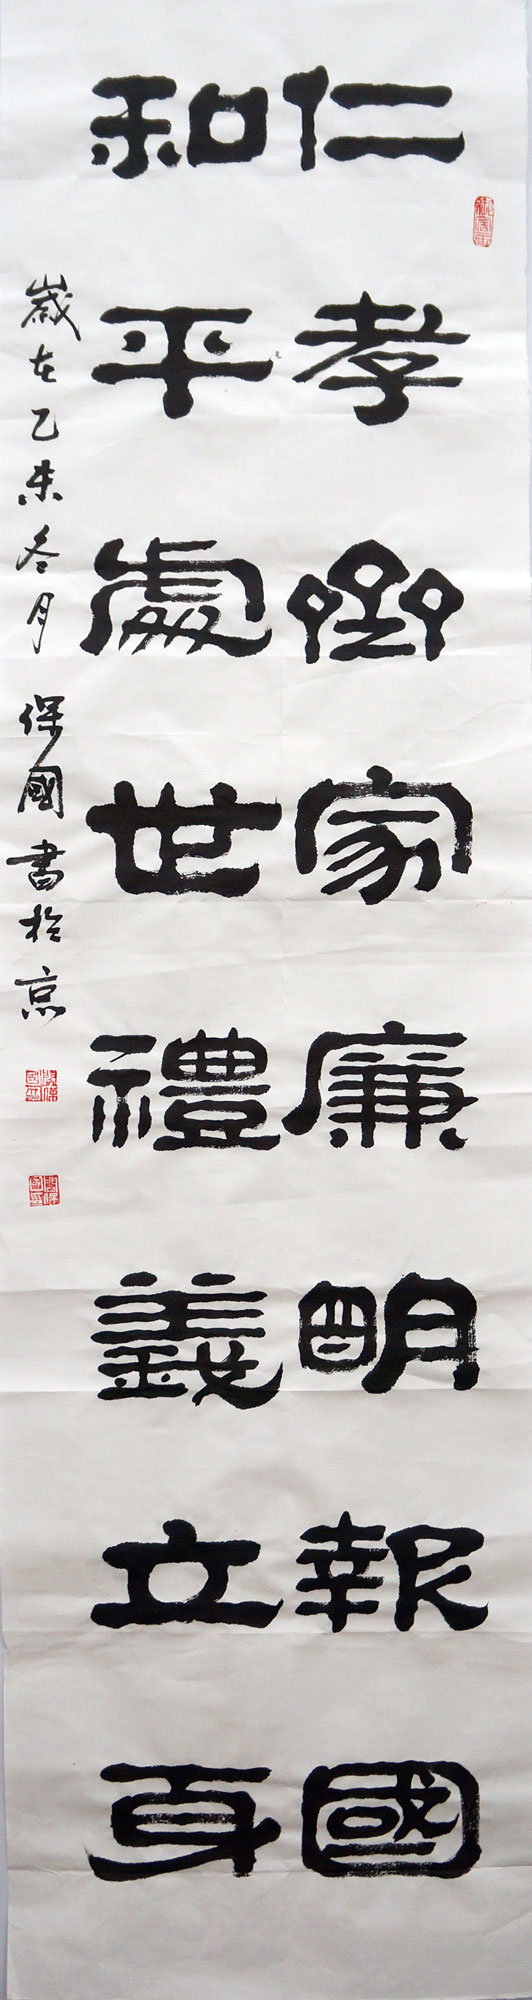 仁孝齊家廉明報國
和平處世禮義立身
歲在乙未冬月保國書於京